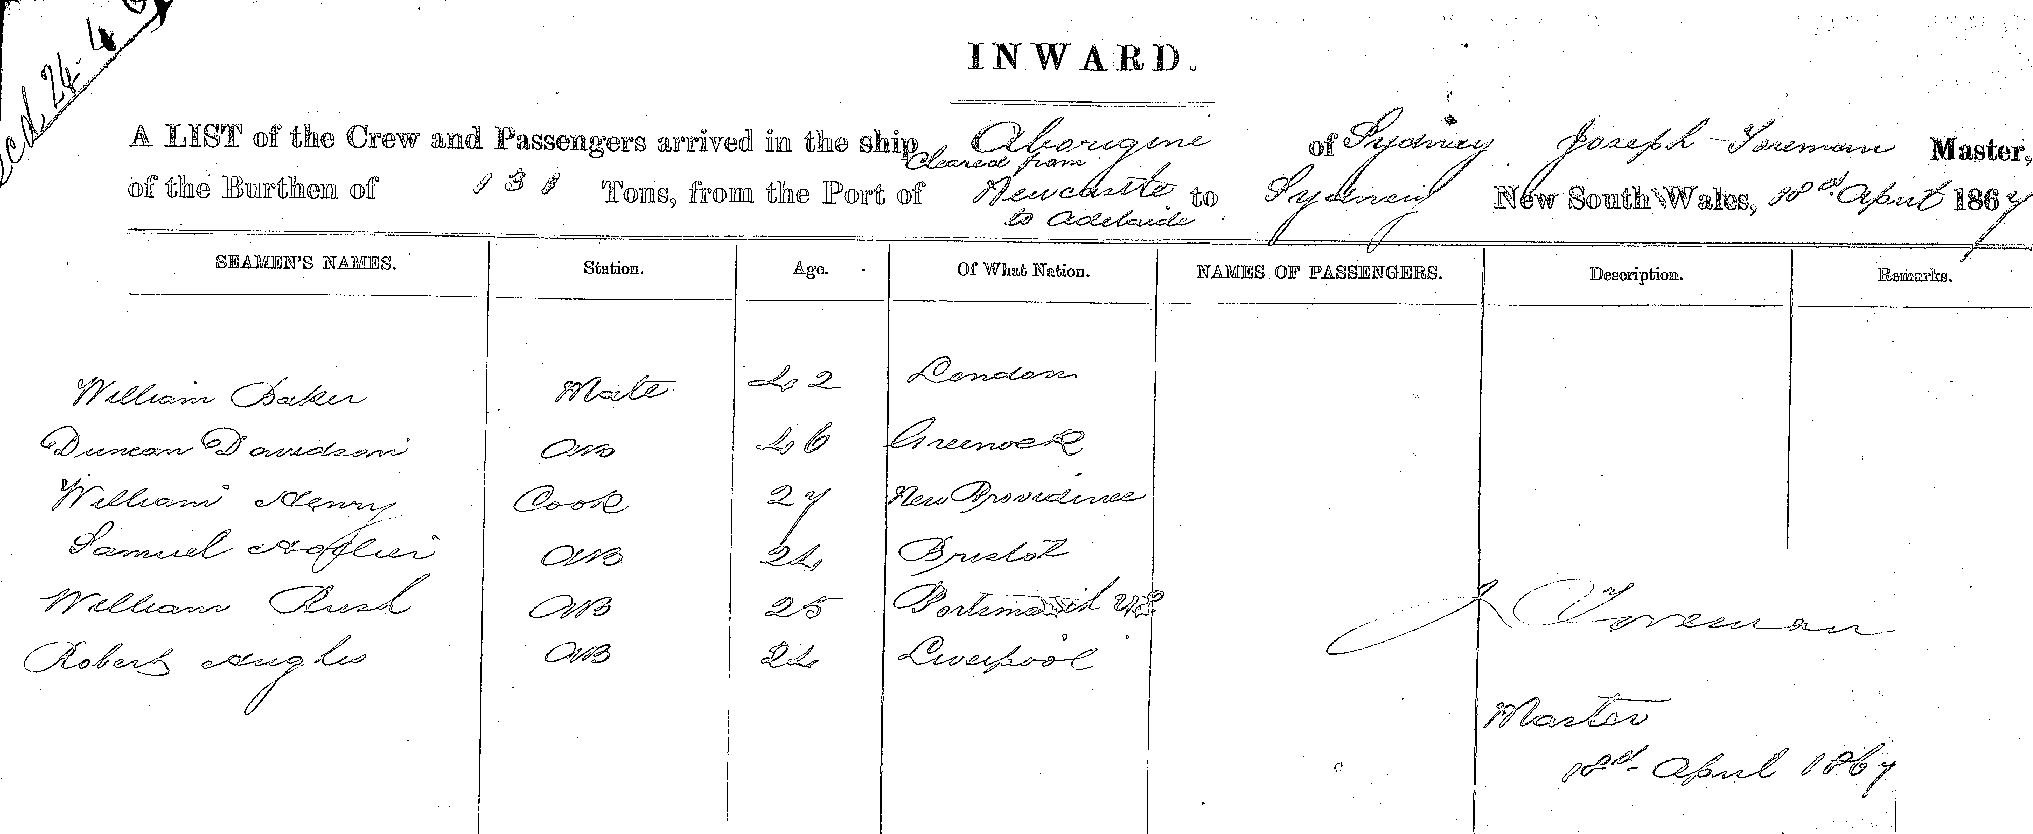 24-4
INWARD.
A LIST of the Crew and Passengers arrived in the ship Aborigine of Sydney Joseph Foreman Master,
Cleared from
of the Burthen of 131 Tons, from the Port of Newcastle to Sydney New South Wales, 18th April 1867
to Adelaide
SEAMEN'S NAMES. Station. Age. Of What Nation. NAMES OF PASSENGERS. Description. Remarks.
William Baker Mate 42 London
Duncan Davidson AB 46 Greenock
William Henry Cook 27 New Providence
Samuel AB 24 Bristol
William Rush AB 25 Portsmouth
Robert Hughes AB 24 Liverpool
J Foreman
Master
18th April 1867